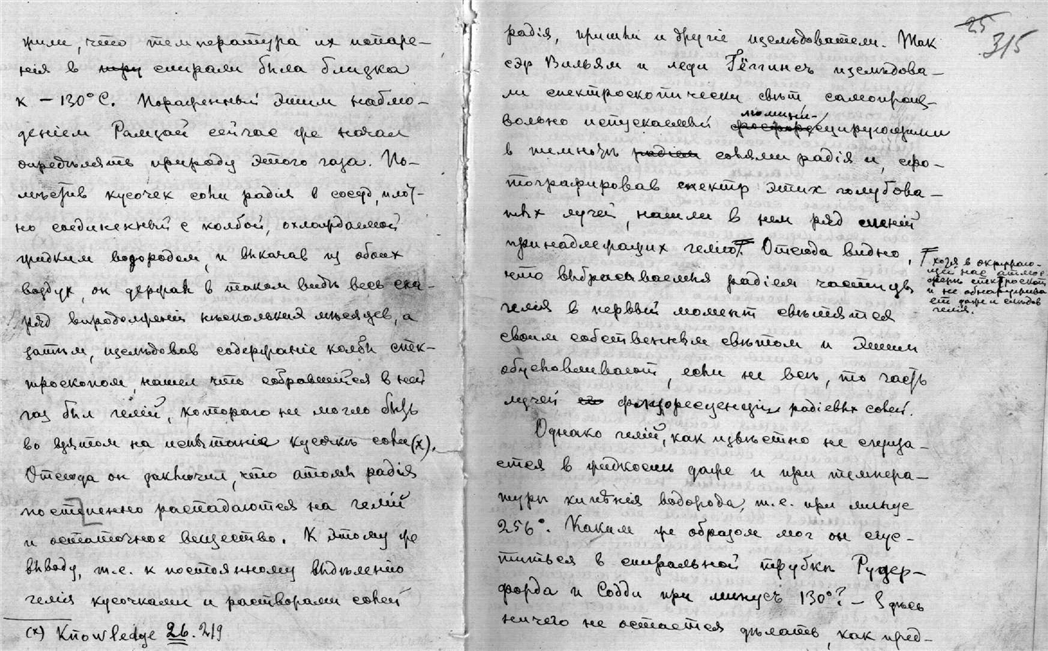 жили, что температура их испаре-
нія в спирали была близка
к – 130°С. Пораженный этим наблю-
дением Рамзай сейчас же начал
опредѣлять природу этого газа. По-
мѣстив кусочек соли радія в сосуд, плот-
но соединенный с колбой, охлаждаемой
жидким водородом, и выкачав из обоих
воздух, он держал в таком видѣ весь сна-
ряд впродолженіи нѣсколких мѣсяцев, а
затѣм, изслѣдовав содержаніе колбы спек-
троскопом, нашел что собравшійся в ней
газ был гелій, котораго не могло быть
во взятом на испытаніе кусочкѣ соли (х).
Отсюда он заключил, что атомы радія
постепенно распадаются на гелій
и остаточное вещество. К этому же
выводу, т.е. к постоянному выдѣленію
гелія кусочками и растворами солей
(х) Knowledge 26. 219
25
315
радія, пришли и другіе изслѣдователи. Так
сэр Вильям и леди Гёггинс изслѣдова-
ли спектроскопически свѣт самопроиз-
вольно испускаемый люмини-
сцирующими
в темнотѣ солями радія и, сфо-
тографировав спектр этих голубова-
тых лучей, нашли в нем ряд линій
принадлежащих гелію, Отсюда видно,
что выбрасываемыя радіем частицы
гелія в первый момент свѣтятся
своим собственным свѣтом и этим
обусловливают, если не весь, то часть
лучей флюоресценціи радіевых солей.
хотя в окружаю-
щей нас атмос-
ферѣ спектроскоп
и не обнаружива-
ет даже и слѣдов
гелія.
Однако гелій, как извѣстно не сгуща-
ется в жидкость даже и при темпера-
туры кипѣнія водорода, т.е. при минус
256°. Каким же образом мог он сгус-
титься в спиральной трубкѣ Рудер-
форда и Содди при минус 130°? – Здѣсь
ничего не остается дѣлать, как пред-